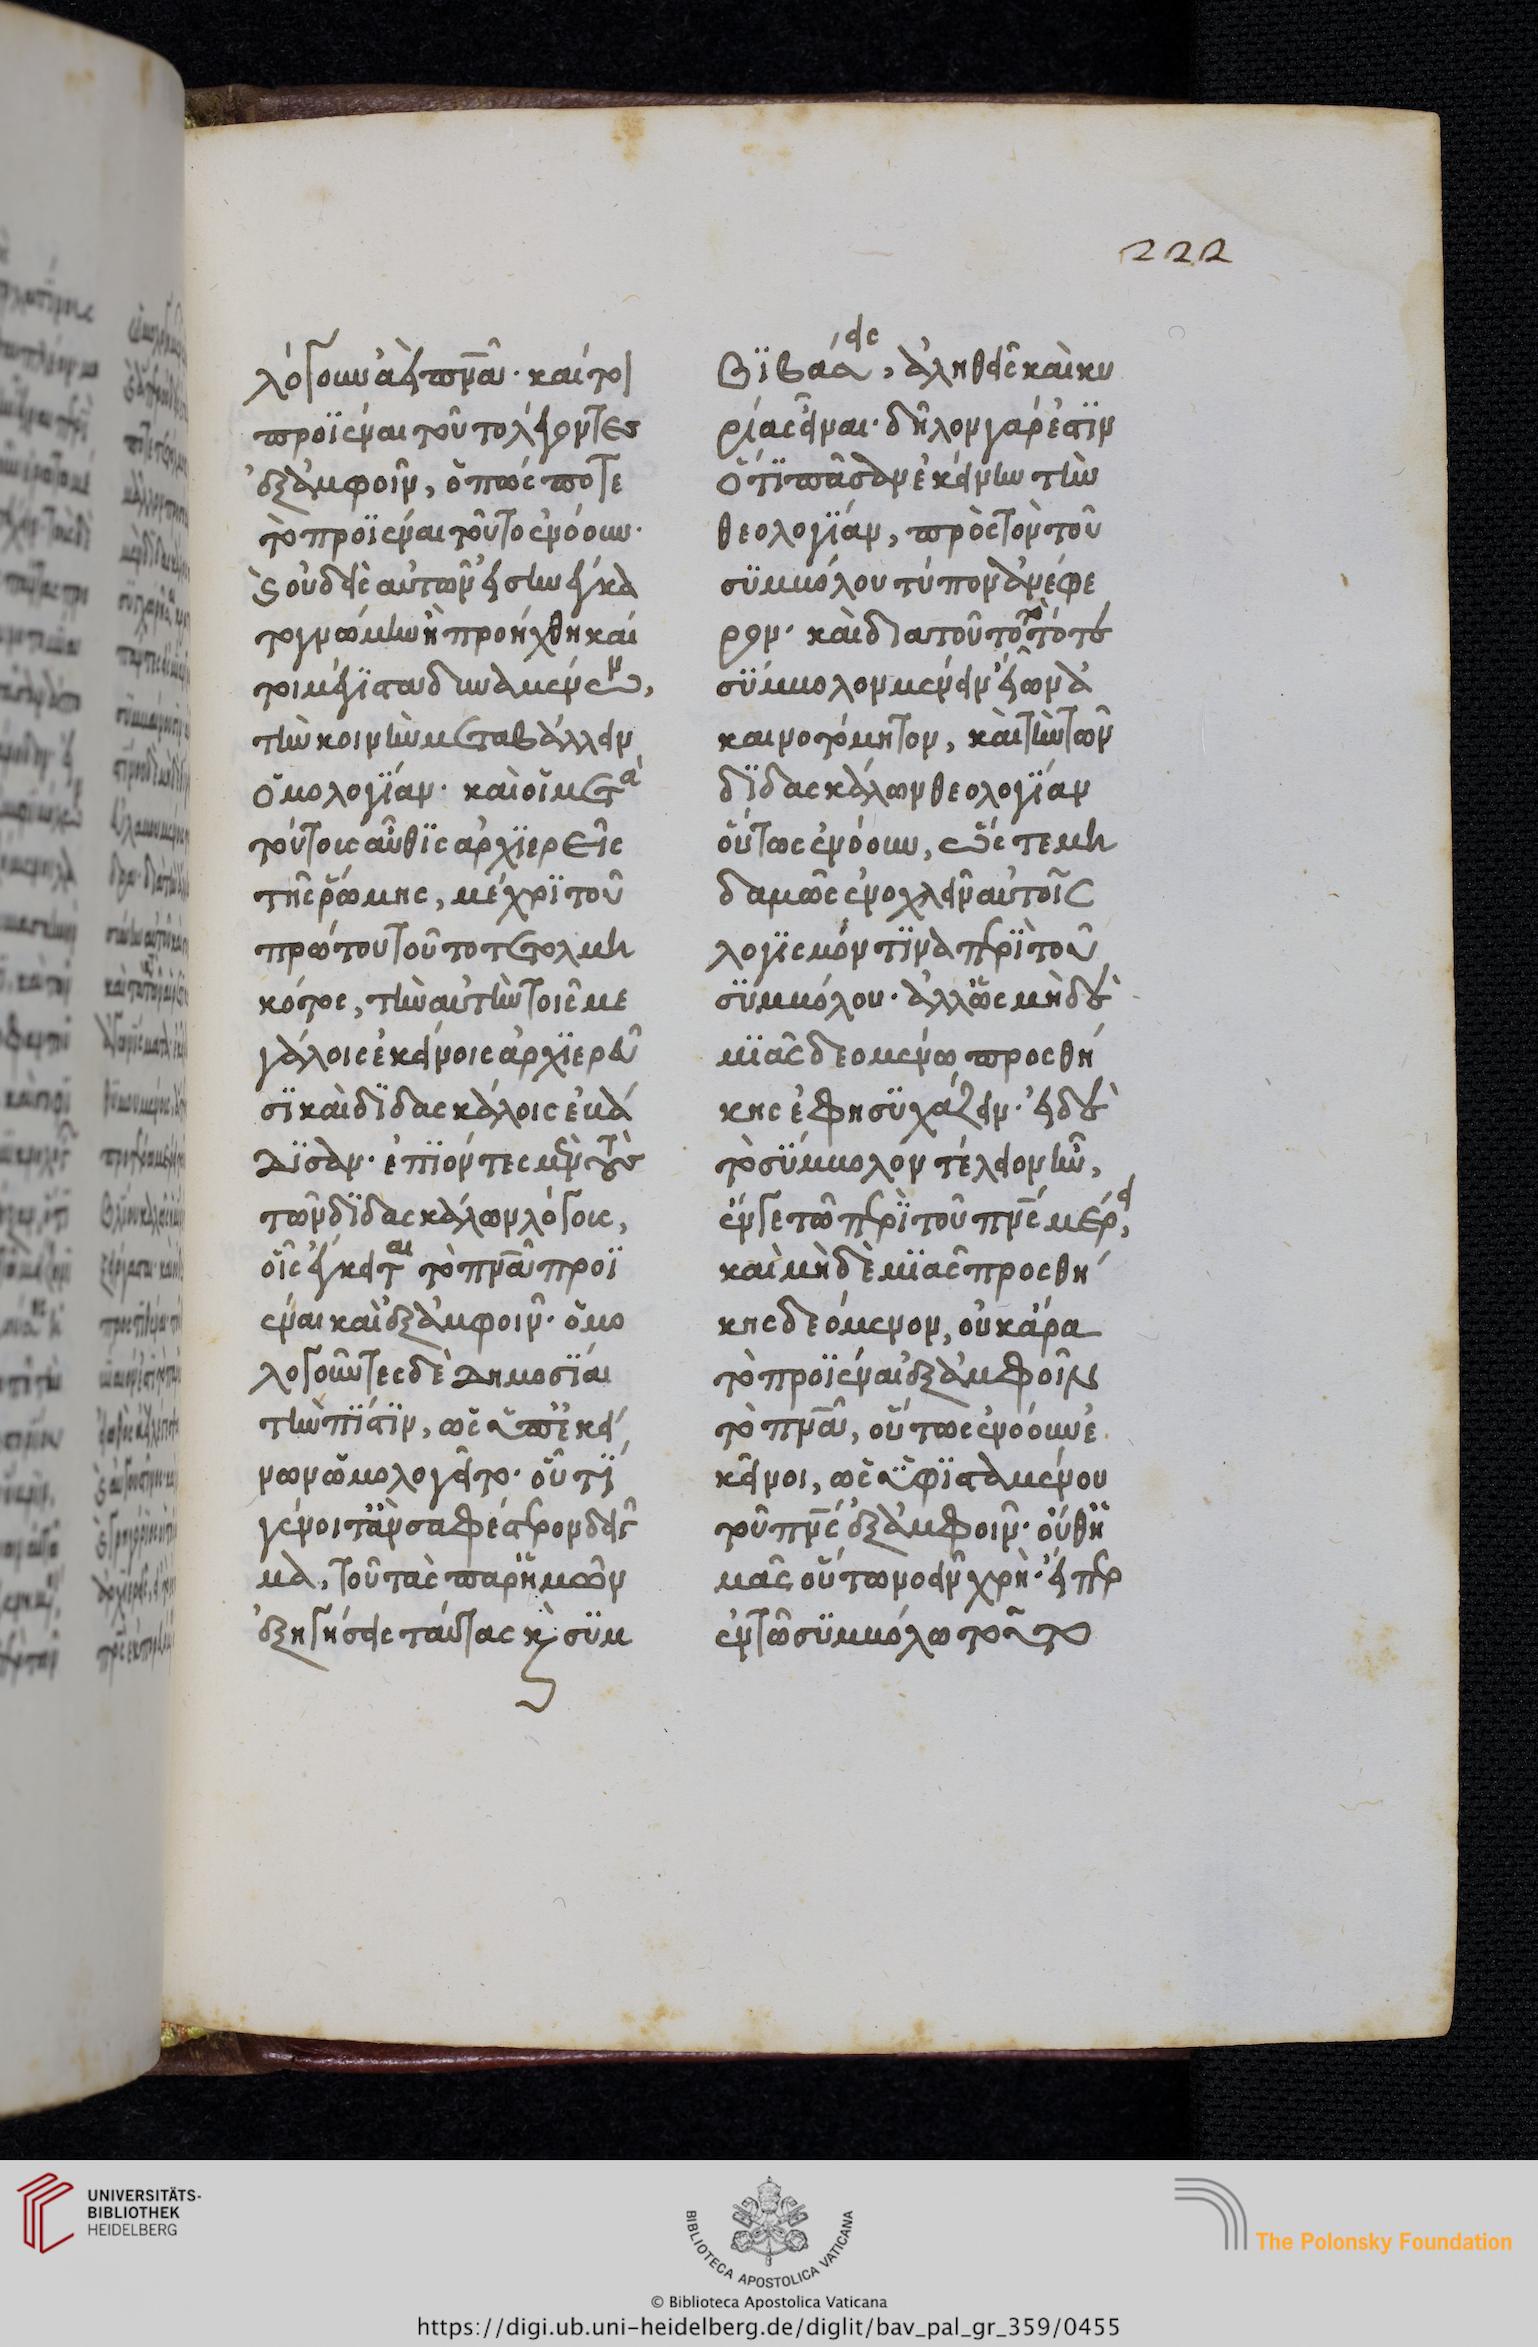 222
λόγουν ἀεὶ τὸ πνᾶ· καί τοι
προϊέναι τοῦτο λέγοντες
ἐξ ἀμφοῖν, ὅπως ποτὲ
τὸ προϊέναι τοῦτο ἐνόουν·
τὴν κοινὴν μεταβάλλειν
ὁμολογίαν· καὶ οἱ μετὰ
τούτοις αὖθις ἀρχιερεῖς
τῆς ῥώμης, μέχρι τοῦ
πρώτου τοῦτο τετολμη
κότος, τὴν αὐτὴν τοῖς με
γάλοις ἐκείνοις ἀρχιερεῦ
σι καὶ διδασκάλοις ἐβά
δισαν· ἐπιόντες μὲν τοὺς
τῶν διδασκάλων λόγους,
οἷς ἔγκειται τὸ πνᾶ προϊ
έναι καὶ ἐξ ἀμφοῖν· ὁμο
λογοῦντες δὲ δημοσίαι
τὴν πίστιν, ὡς ὑπ' ἐκεί
νων ὡμολογεῖτο· οὗ τί
γένοιτ' ἂν σαφέστερον δεῖγ
μα, τοῦ τὰς παρ' ἡμῶν
ἐξηγήσεις ταύτας κ συμ
βιβάσεις, ἀληθεῖς καὶ κυ
ρίας εἶναι· δῆλον γάρ ἐστιν
ὅτι πᾶσαν ἐκείνην τὴν
θεολογίαν, πρὸς τὸν τοῦ
συμβόλου τύπον ἀνέφε
ρον· καὶ διὰ τοῦτο τό τε
σύμβολον μένειν εἴων ἀ
καινοτόμητον, καὶ τὴν τῶν
διδασκάλων θεολογίαν
οὕτως ἐνόουν, ὥς τε μη
δαμῶς ἐνοχλεῖν αὐτοῖς
λογισμόν τινα περὶ τοῦ
συμβόλου· ἀλλ' ὡς μηδε
μιᾶς δεομένω προσθή
κης ἐφησυχάζειν· εἰ δὲ
τὸ σύμβολον τέλειον ἦν,
ἔν γε τῷ περὶ τοῦ πνς μέρει,
καὶ μηδὲ μιᾶς προσθή
κης δεόμενον, οὐκ ἄρα
τὸ προϊέναι ἐξ ἀμφοῖν
τὸ πνᾶ, οὕτως ἐνόουν ἐ
κεῖνοι, ὡς ὑφισταμένου
τοῦ πνς ἐξ ἀμφοῖν· οὔθ' ἡ
μᾶς οὕτω νοεῖν χρή· εἴπερ
ἐν τῷ συμβόλω τοῦτο
UNIVERSITÄTS-
BIBLIOTHEK
HEIDELBERG
BIBLIOTECA APOSTOLICA VATICANA
The Polonsky Foundation
© Biblioteca Apostolica Vaticana
https://digi.ub.uni-heidelberg.de/diglit/bav_pal_gr_359/0455